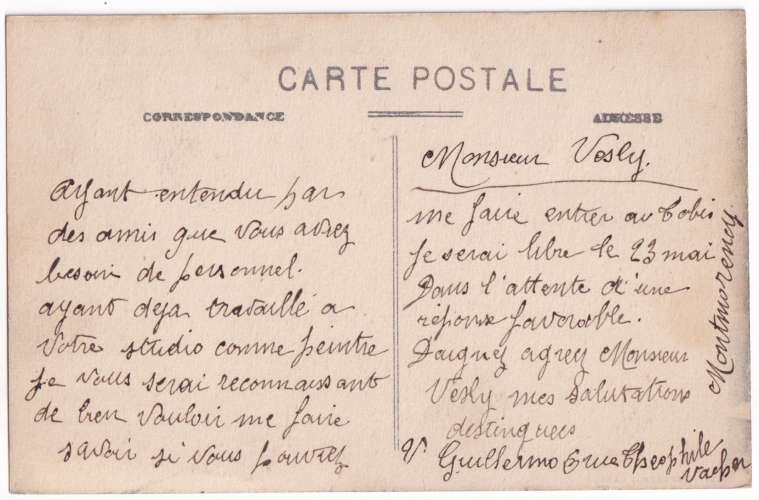 CARTE POSTALE
CORRESPONDANCE
ADRESSE
Ayant entendu par
des amis que vous avez
besoin de personnel.
ayant deja travaillé a
votre studio comme peintre
Je vous serai reconnaissant
de bien vouloir me faire
savoir si vous pouvez
Monsieur Vesly.
me faire entrer au Tobis
Je serai libre le 23 mai
Dans l'attente d'une
réponse favorable.
Daignez agrez Monsieur
Vesly mes salutations
destinquees
V. Guillermo 6 rue Theophile
Vacher
Montmorency.